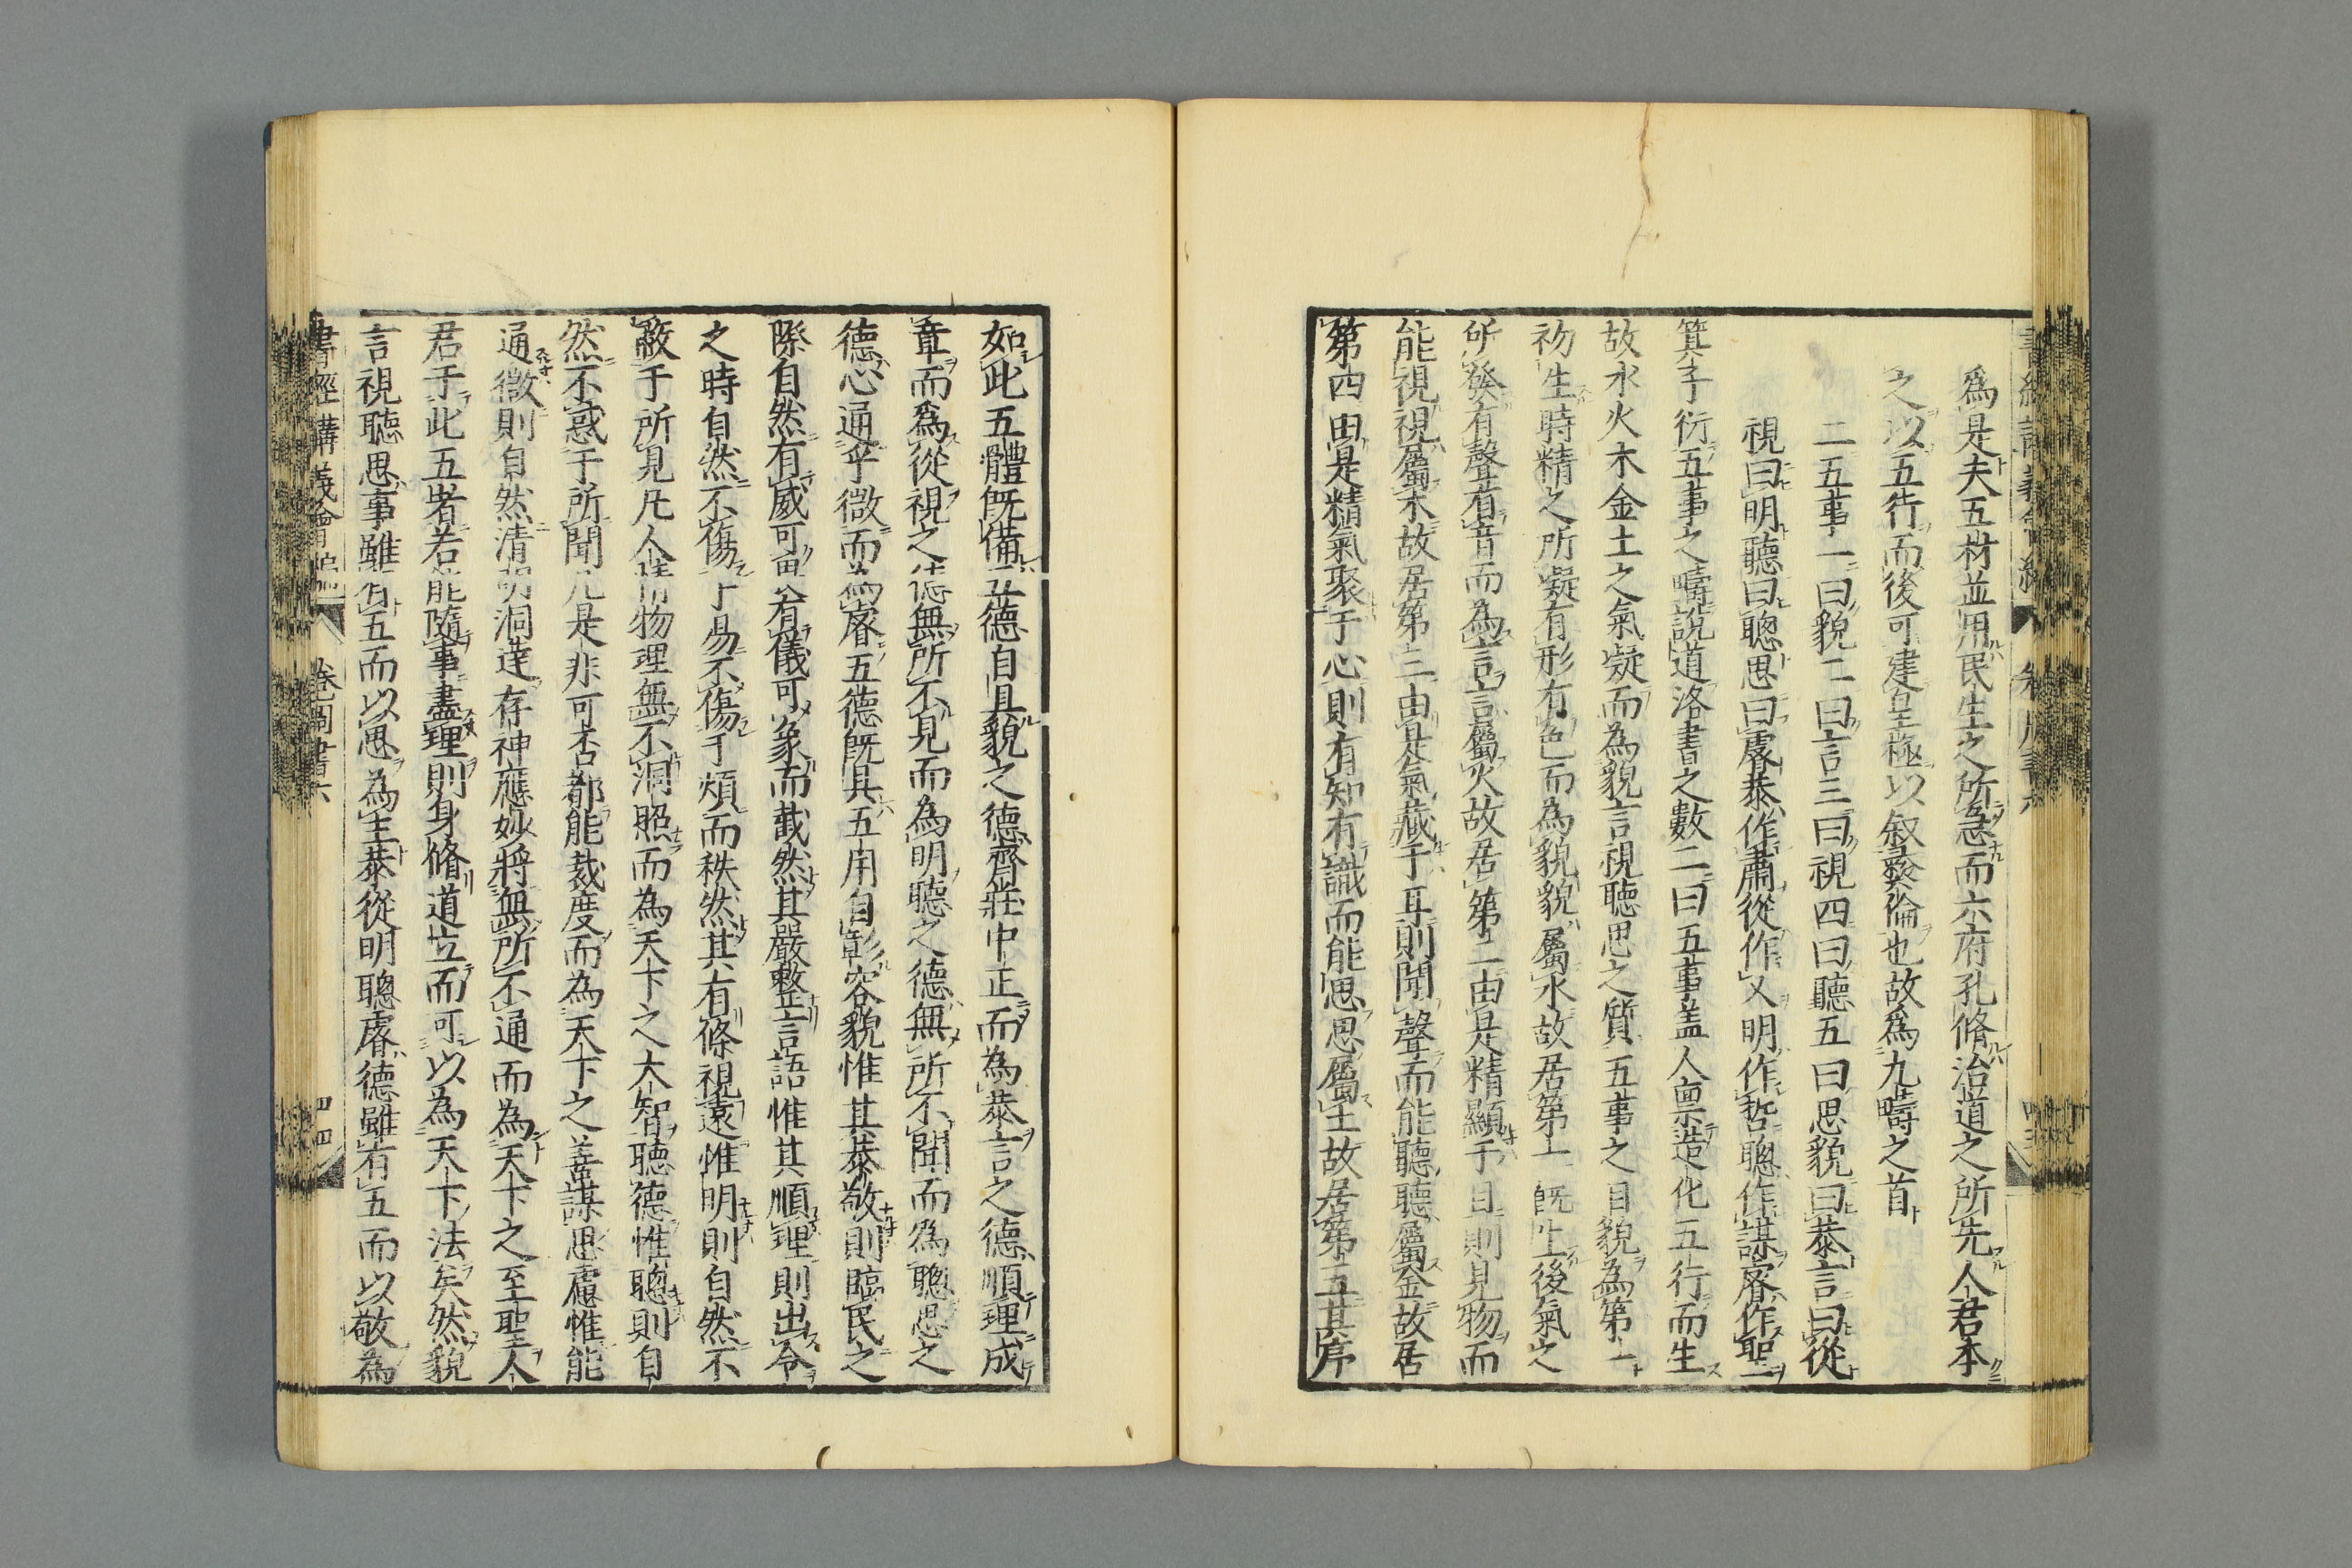 爲是夫五材並用民生之所急而六府孔脩治道之所先人君本
之以五行而後可建皇極以叙彜倫也故爲九疇之首
二五事一曰貌二曰言三曰視四曰聽五曰思貌曰恭言曰從
視曰明聽曰聰思曰睿恭作肅從作乂明作哲聰作謀睿作聖
箕子衍五事之疇說道洛書之數二曰五事盖人禀造化五行而生
故水火木金土之氣凝而為貌言視聽思之質五事之目貌為第一
初生時精之所凝有形有色而為貌貌屬水故居第一既生後氣之
所發有聲有音而為言言屬火故居第二由是精顯于目則見物而
能視視屬木故居第三由是氣藏于耳則聞聲而能聽聽屬金故居
第四由是精氣聚于心則有知有識而能思思屬土故居第五其序
如此五體既備五德自具貌之德齊莊中正而為恭言之德順理成
章而爲從視之德無所不見而為明聽之德無所不聞而爲聰思之
德心通乎微而為睿五德既具五用自彰容貌惟其恭敬則臨民之
際自然有威可畏有儀可象而截然其嚴整言語惟其順理則出令
之時自然不傷于易不傷于煩而秩然其有條視遠惟明則自然不
蔽于所見凡人情物理無不洞照而為天下之大智聽德惟聰則自
然不惑于所聞凡是非可否都能裁度而為天下之善謀思慮惟能
通微則自然清明洞達存神應妙將無所不通而為天下之至聖人
君于此五者若能隨事盡理則身脩道立而可以為天下法矣然貌
言視聽思事雖有五而以思為主恭從明聰睿德雖有五而以敬為
書經講義會編 卷 周書六 四四